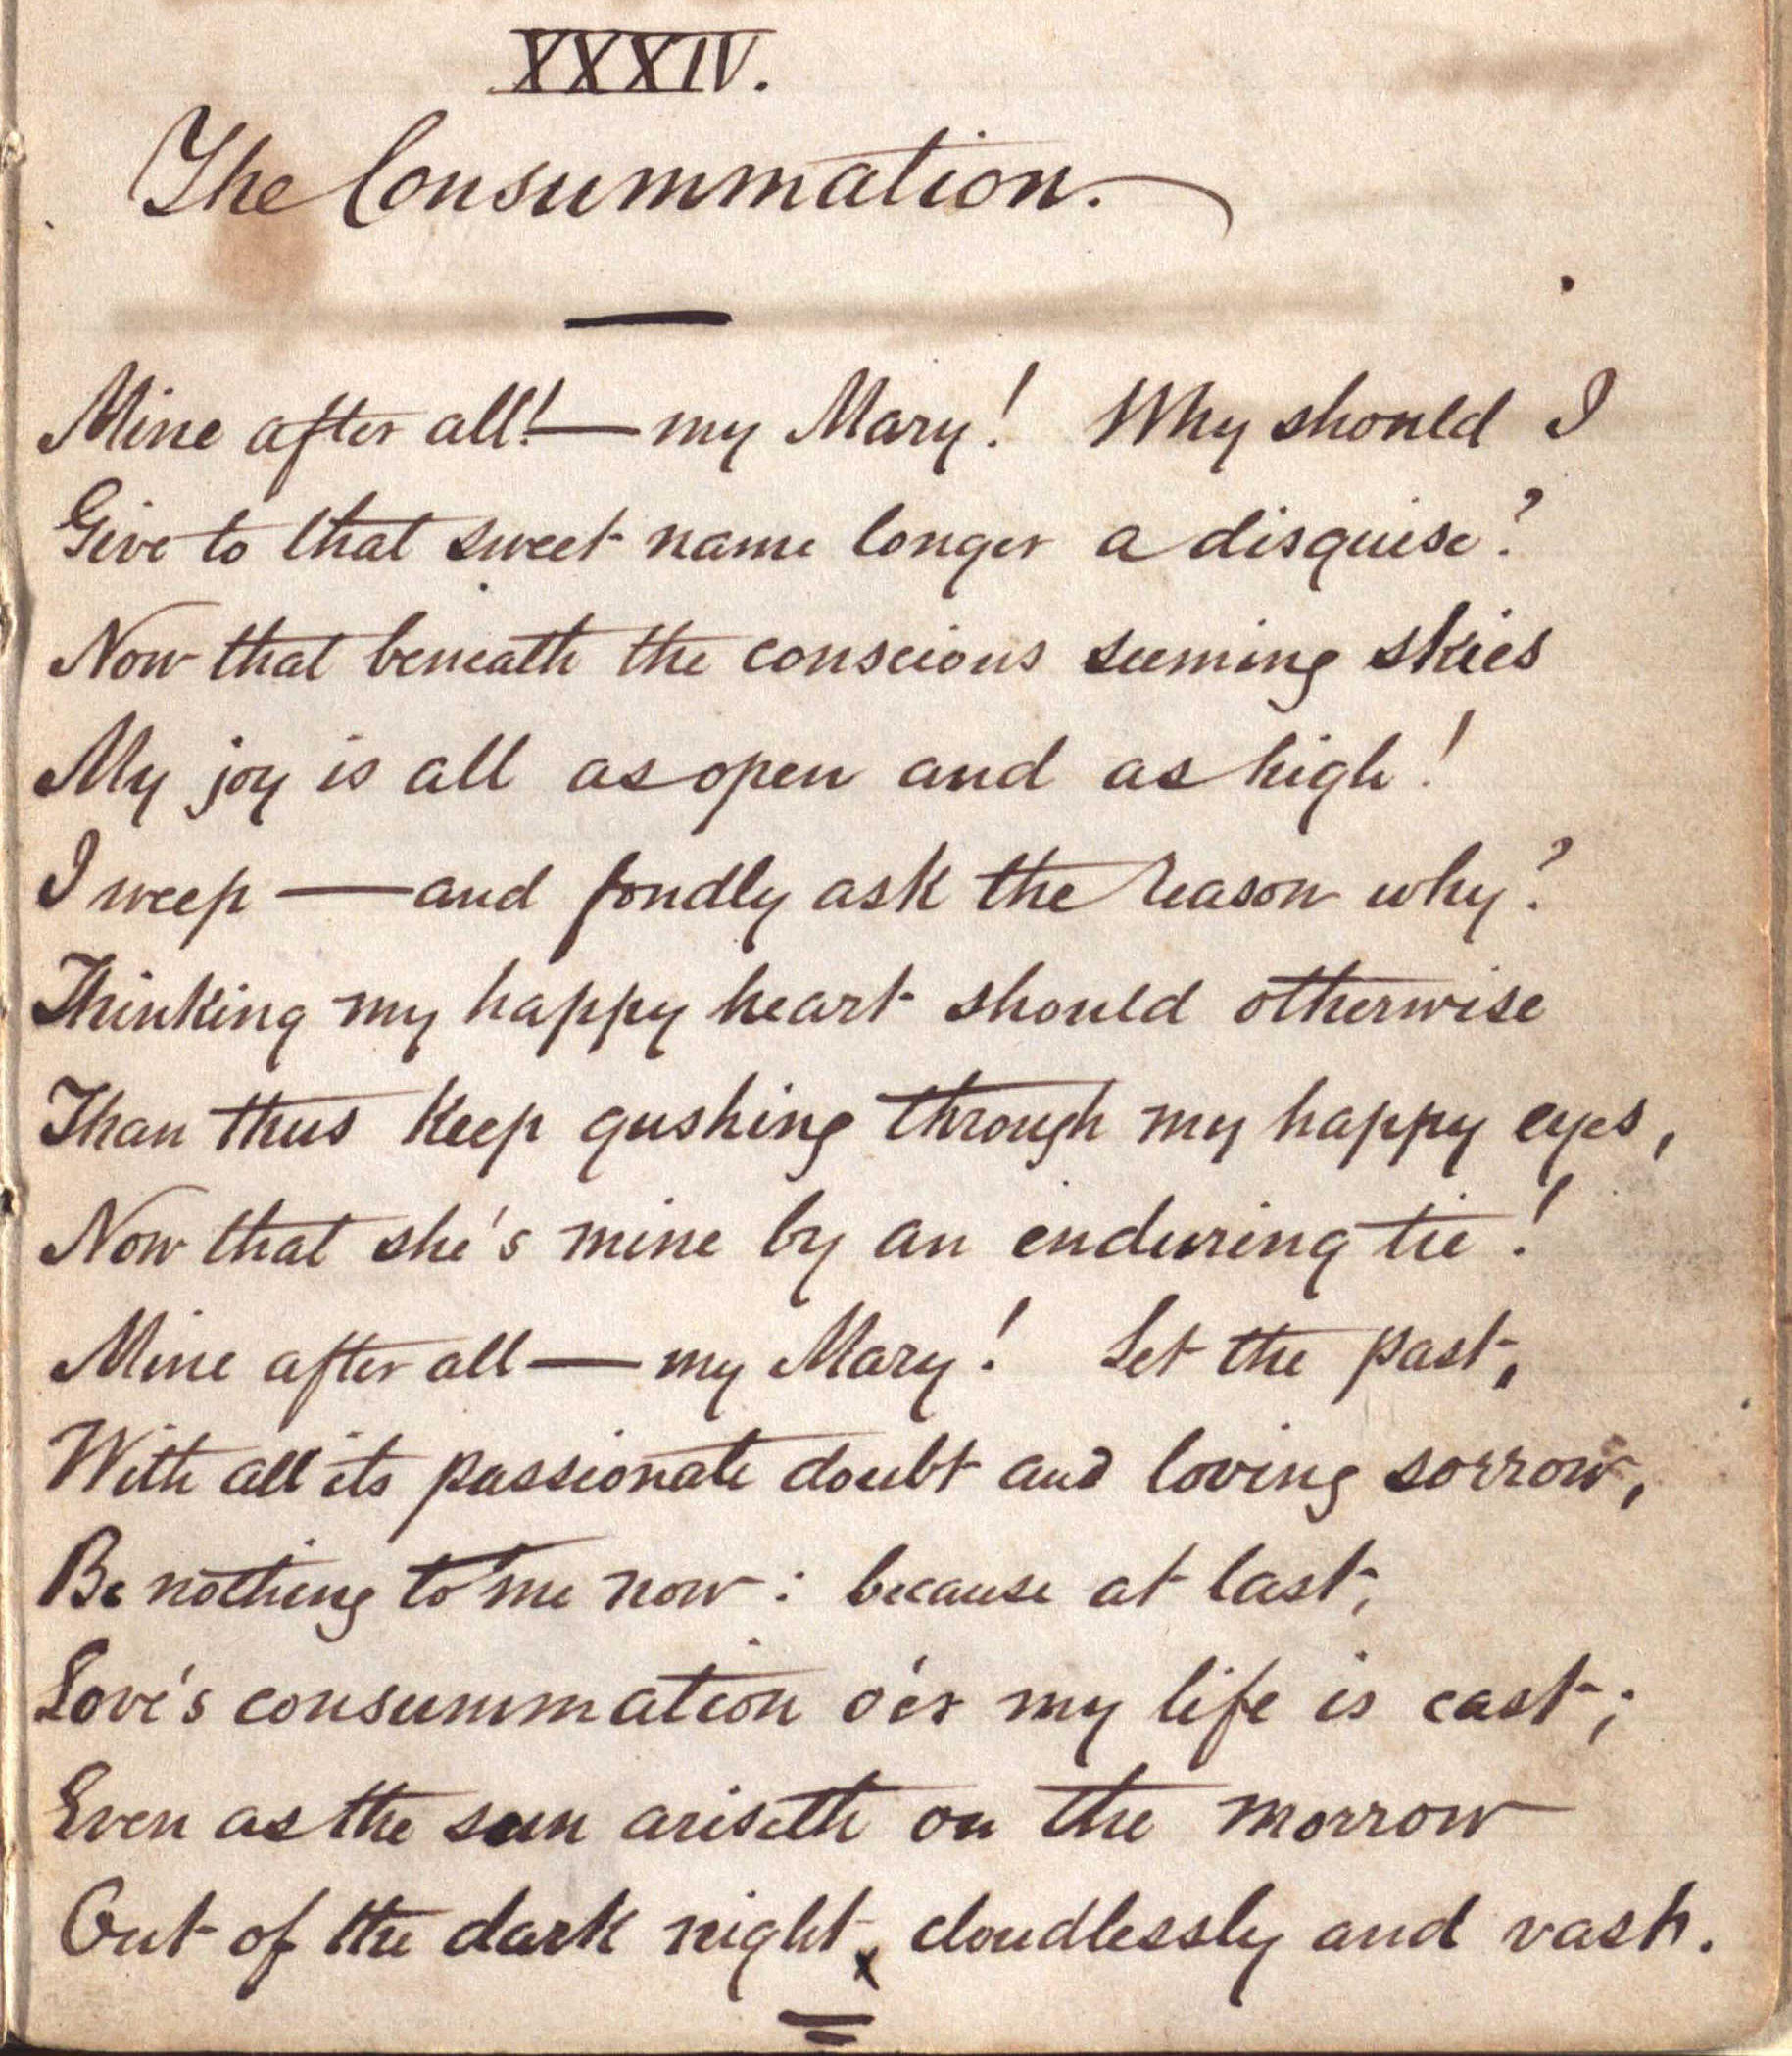 XXXIV.
The Consummation.
Mine after all!—my Mary! Why should I
Give to that sweet name longer a disguise?
Now that beneath the conscious seeming skies
My joy is all as open and as high!
I weep—and fondly ask the reason why?
Thinking my happy heart should otherwise
Than thus keep gushing through my happy eyes,
Now that she's mine by an enduring tie!
Mine after all—my Mary! Let the past,
With all its passionate doubt and loving sorrow,
Be nothing to me now: because at last,
Love's consummation o'er my life is cast;
Even as the sun ariseth on the morrow
Out of the dark night, cloudlessly and vast.